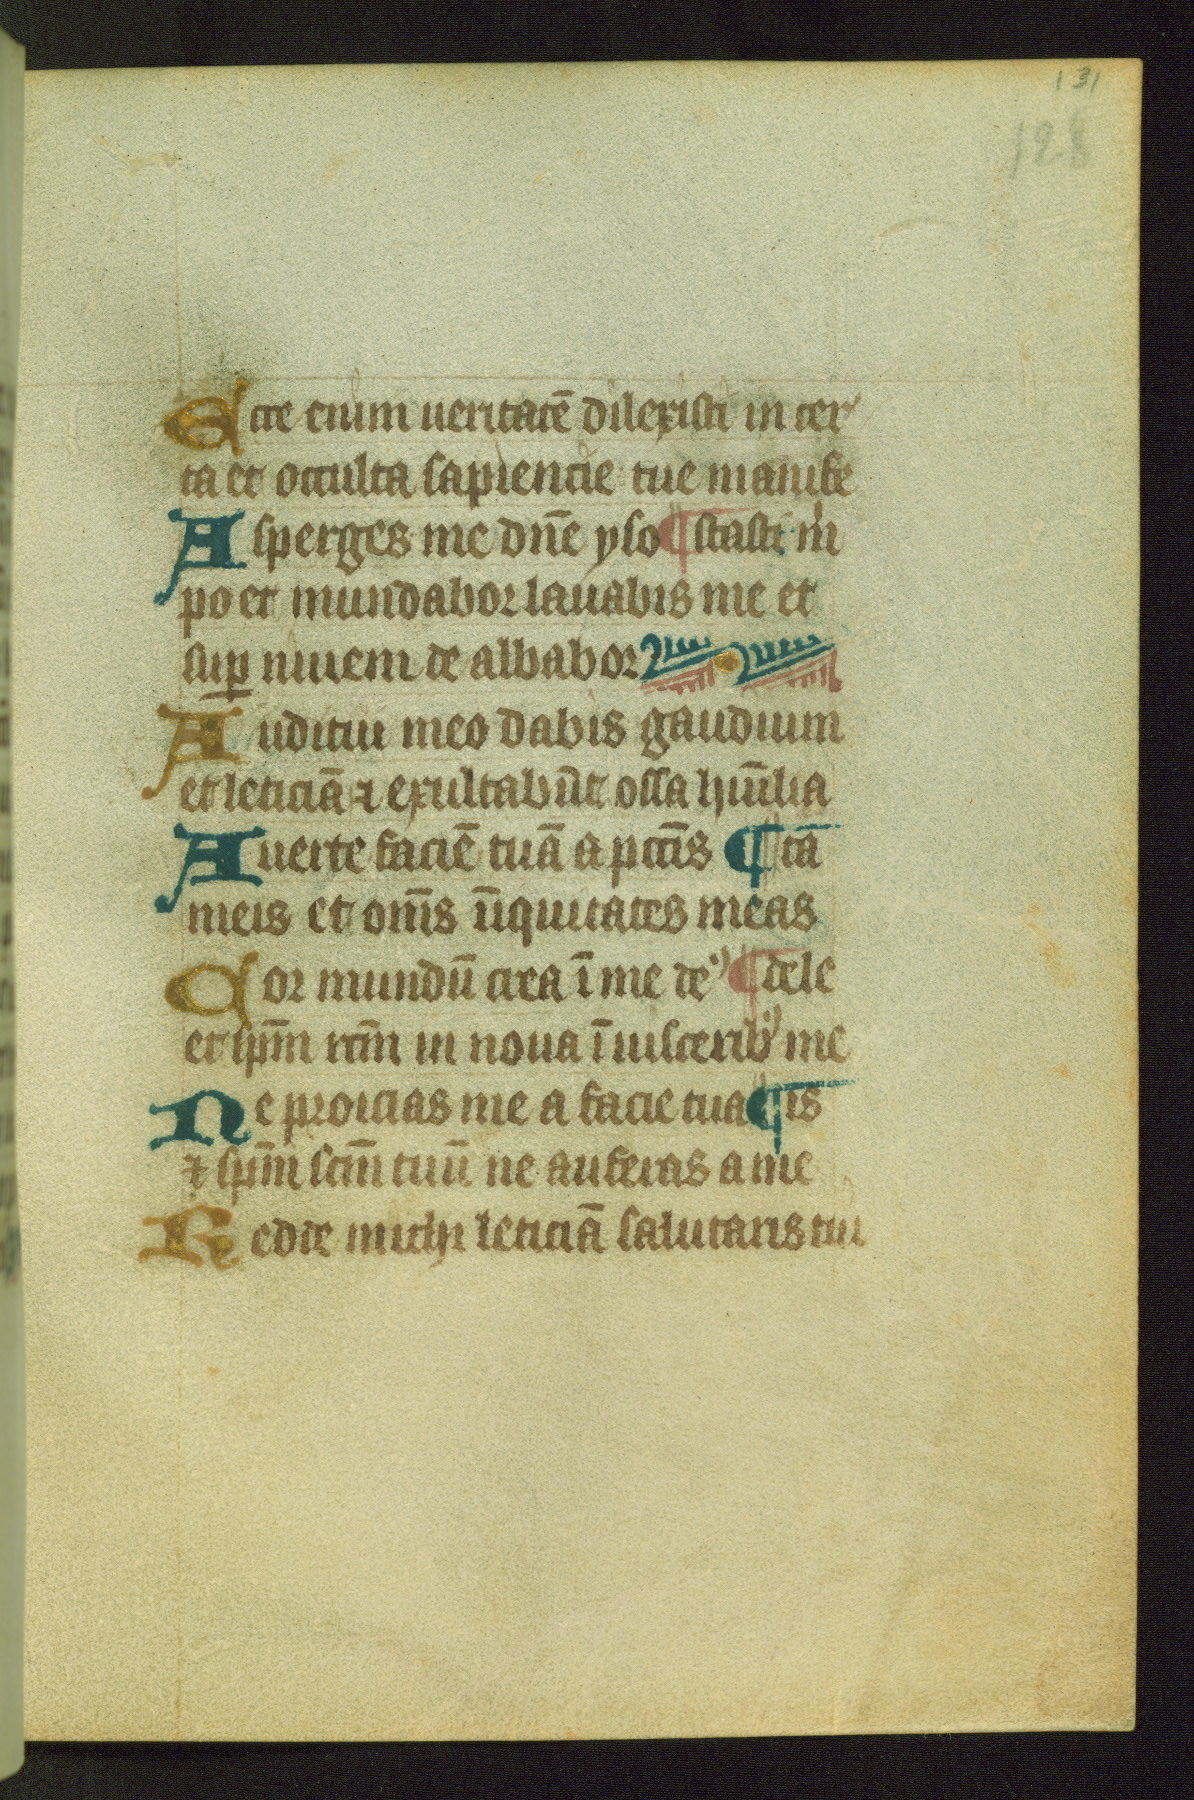 131
128
Ecce enim ueritatē dilexisti in cer
ta et occulta sapiencie tue manife
Asperges me dn̄e yso ¶ stasti m
po et mundabor lauabis me et
sup niuem de albabor
Auditui meo dabis gaudium
et leticiā ⁊ exultabūt ossa hūilia
Auerte faciē tuā a pcc̄is ¶ ta
meis et om̄s īiquitates meas
Cor mundū crea ī me de⁹ ¶ dele
et sp̄m rc̄m in noua ī uisceribꝫ me
Ne proicias me a facie tua ¶ is
⁊ sp̄m sc̄m tuū ne auferas a me
Redde michi leticiā salutaris tui